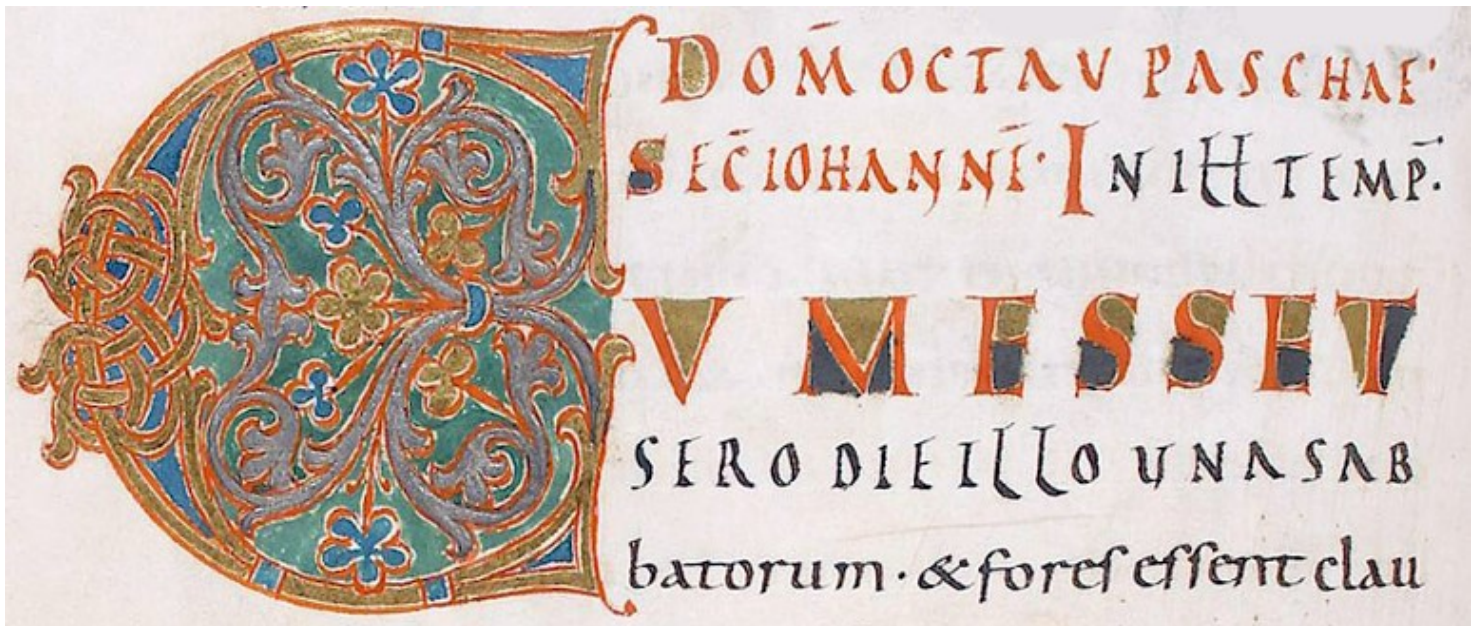 DOM̄ OCTAV PASCHAE·
SEC̄ IOHANNĒ· IN ILL TEMP̄.
CUM ESSET
SERO DIE ILLO UNA SAB
batorum · & fores essent clau